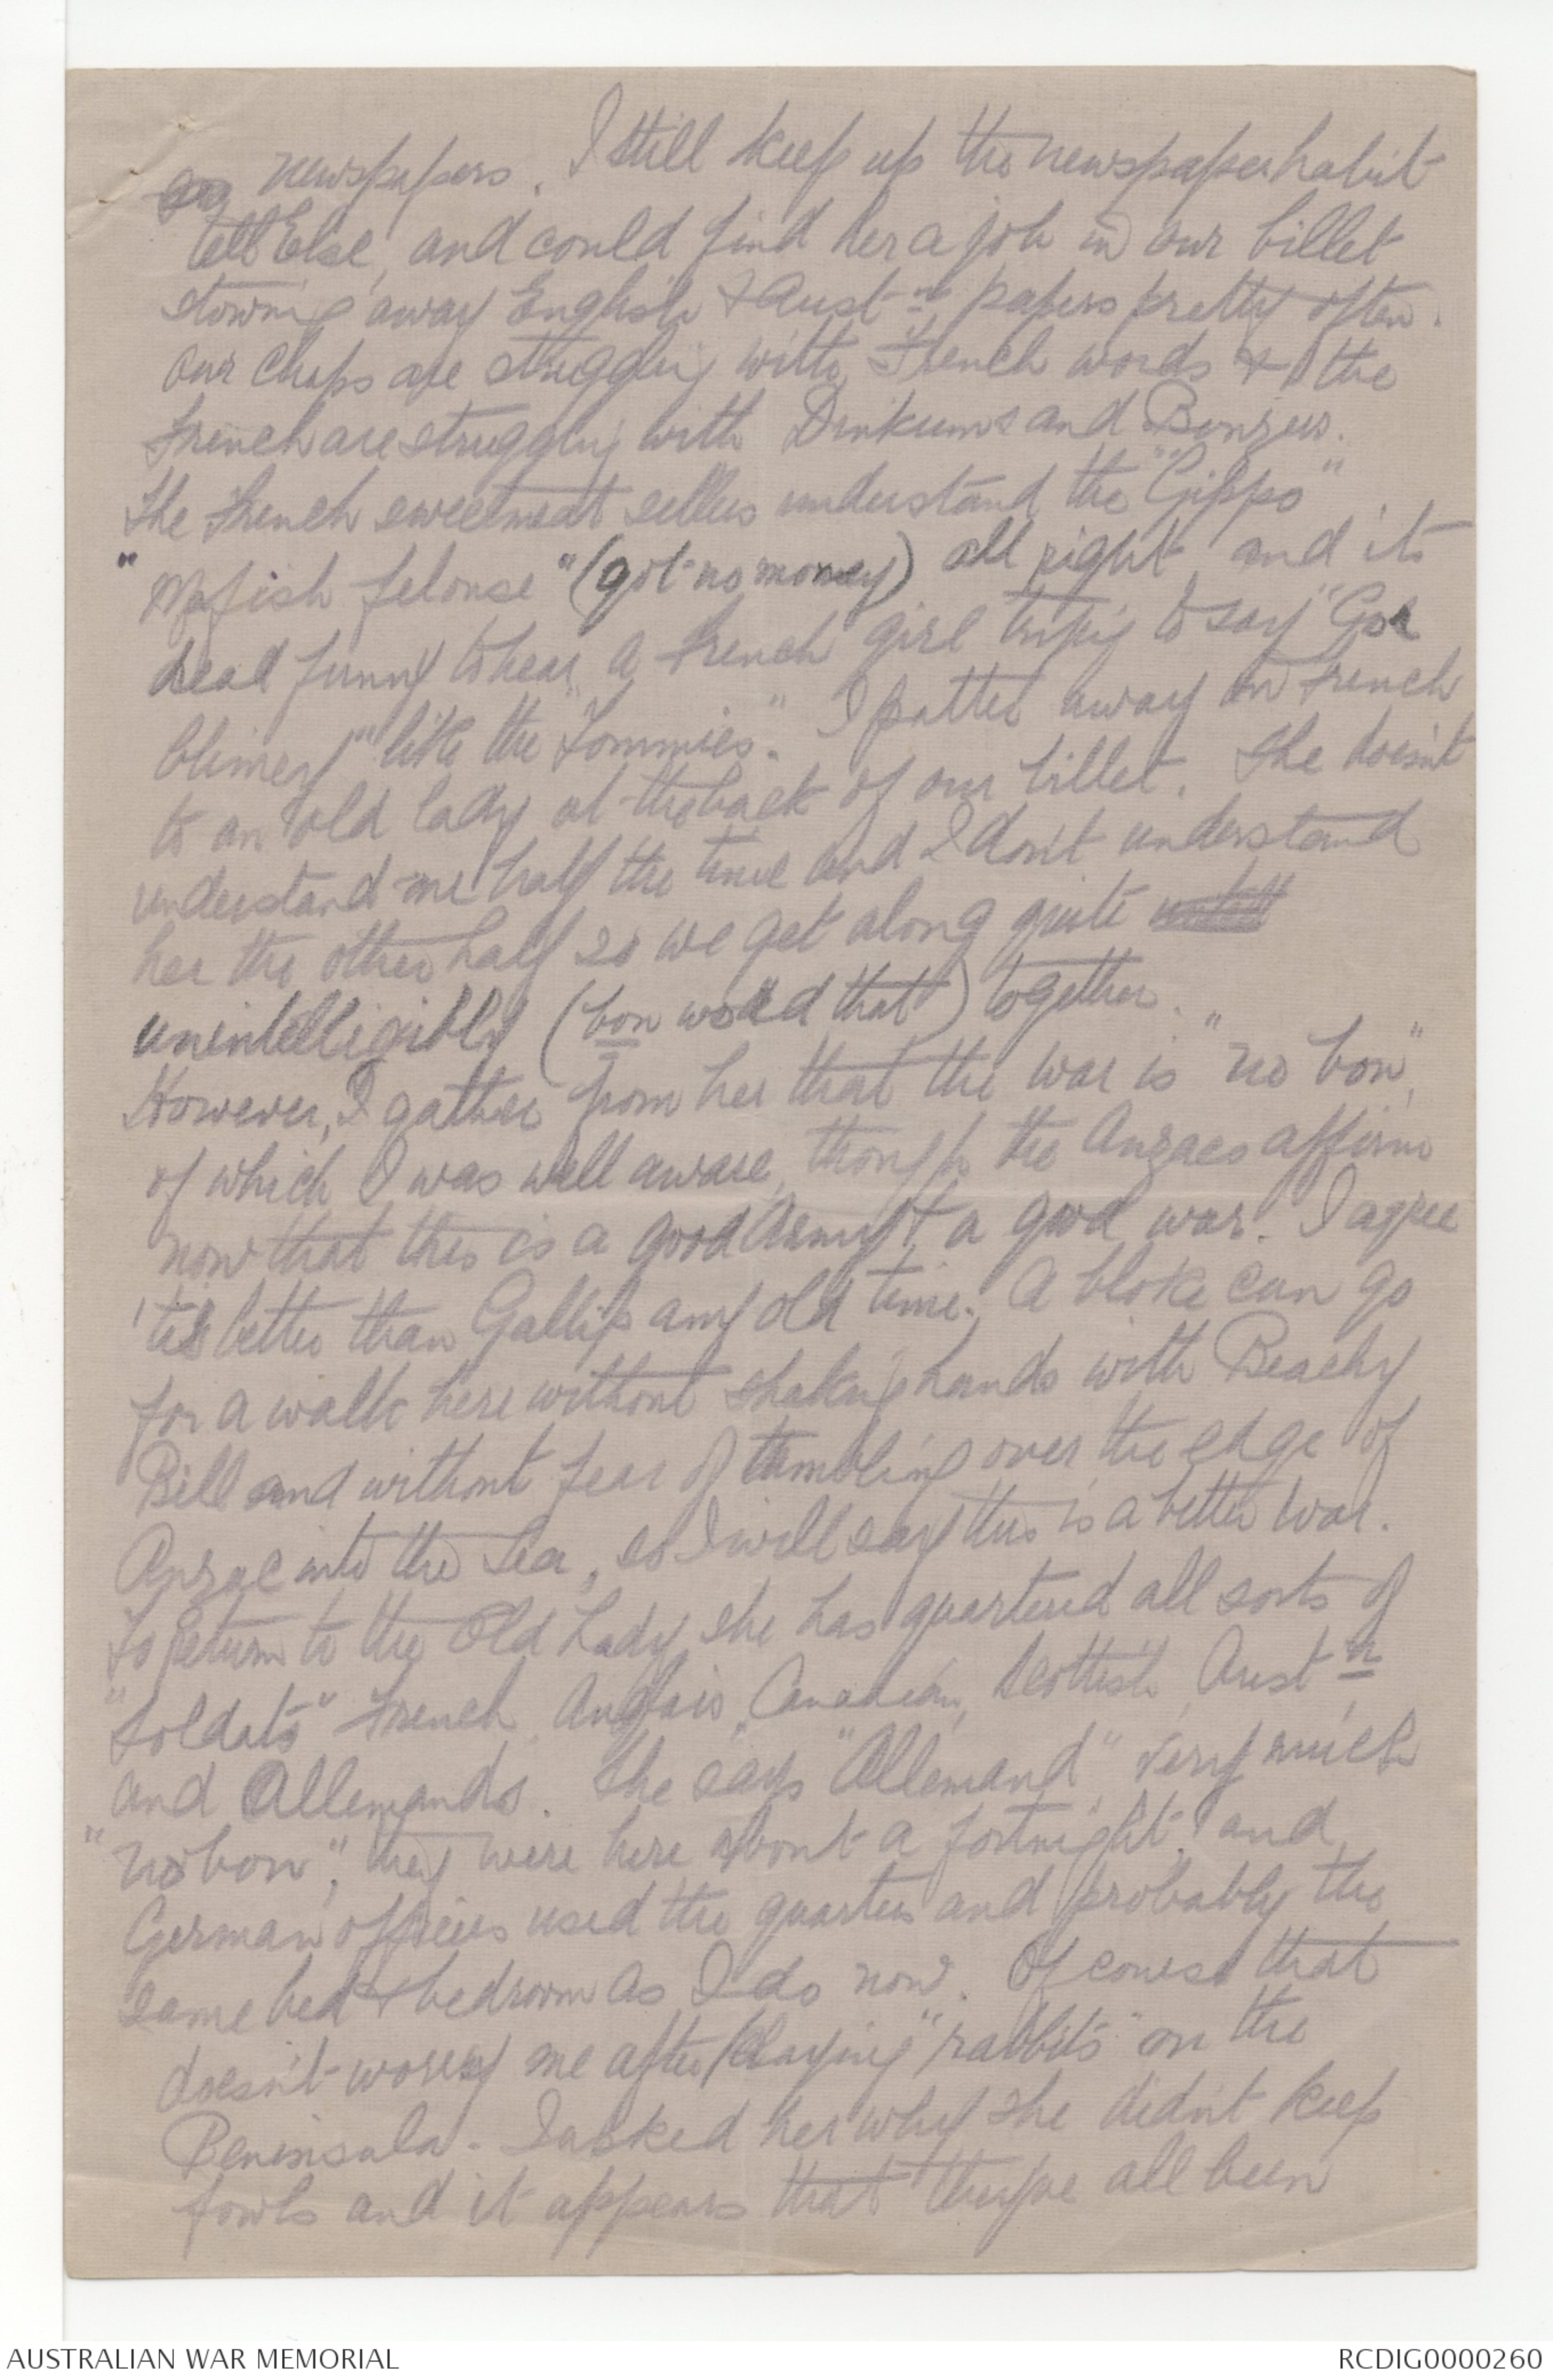 newspapers. I still keep up the newspaper habit
tell Else, and could find her a job in our billet
stowing away English & Aust-n papers pretty often.
Our chaps are struggling with French words & the
French are struggling with Dinkums and Bonzers.
The French sweetmeat sellers understand the "Gippo"
"Mafish felouse" (got no money) all right and its
dead funny to hear a French girl trying to say "Gor
blimey" like the "Tommies." I patter away in French
to an old lady at the back of our billet. She doesn't
understand me half the time and I don't understand
her the other half so we get along quite
unintelligibly (bon word that) together.
However, I gather from her that the war is "no bon",
of which I was well aware, though the Anzacs affirm
now that this is a good Army & a good war. I agree
'tis better than Gallip any old time. A bloke can go
for a walk here without shaking hands with Beachy
Bill and without fear of tumbling over the edge of
Anzac into the Sea, so I will say this is a better war.
To return to the Old Lady she has quartered all sorts of
"Soldats" French, Anglais, Canadian, Scottish, Aust n
and Allemands. She says "Allemand" very much
"no bon", they were here about a fortnight, and
German officers used the quarters and probably the
same bed & bedroom as I do now. Of course that
doesn't worry me after playing "rabbits" on the
Peninsula. I asked her why she didn't keep
fowls and it appears that they've all been
AUSTRALIAN WAR MEMORIAL
RCDIG0000260